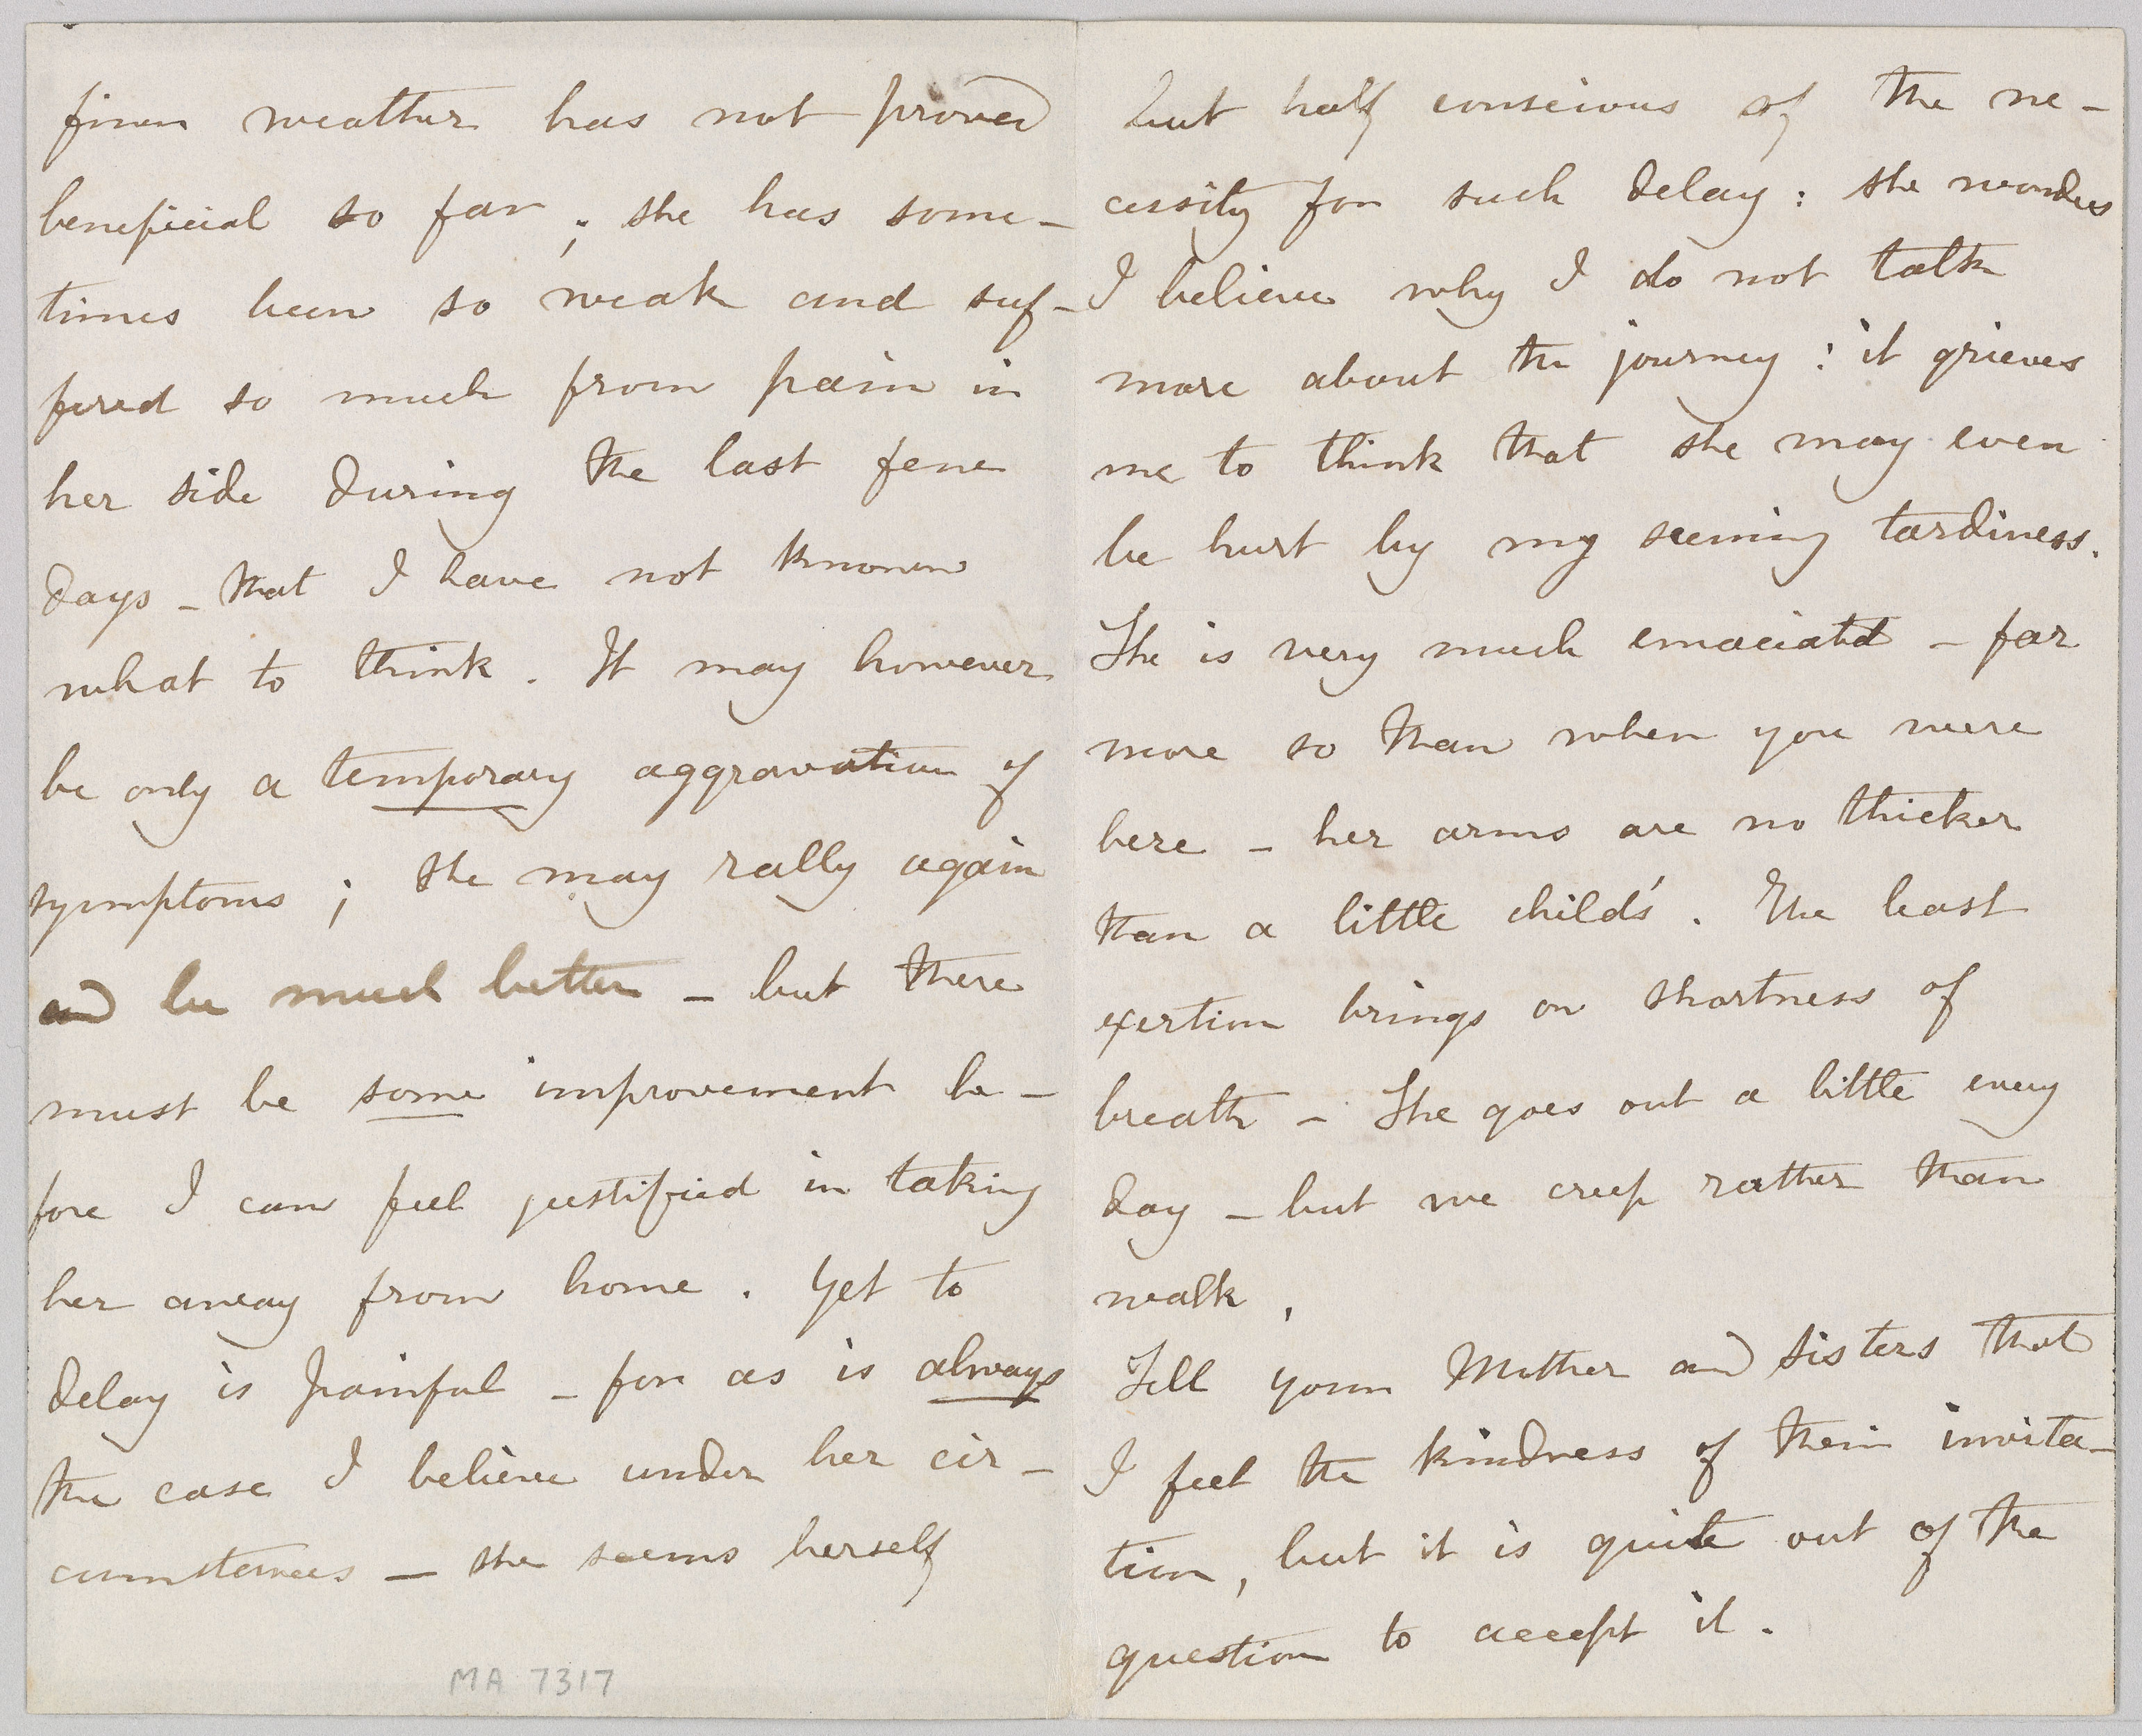 finer weather has not proved
beneficial so far ; she has some-
times been so weak and suf-
fered so much from pain in
her side during the last few
days - that I have not known
what to think . It may however
be only a temporary aggravation of
symptoms ; she may rally again
and be much better - but there
must be some improvement be-
fore I can feel justified in taking
her away from home . Yet to
delay is painful - for as is always
the case I believe under her cir-
cumstances - she seems herself
MA 7317
but half conscious of the ne-
cessity for such delay : she wonders
I believe why I do not talk
more about the journey : it grieves
me to think that she may even
be hurt by my seeming tardiness.
She is very much emaciated - far
more so than when you were
here - her arms are no thicker
than a little child's . The least
exertion brings on shortness of
breath - She goes out a little every
day - but we creep rather than
walk .
Tell your Mother and Sisters that
I feel the kindness of their invita-
tion , but it is quite out of the
question to accept it .